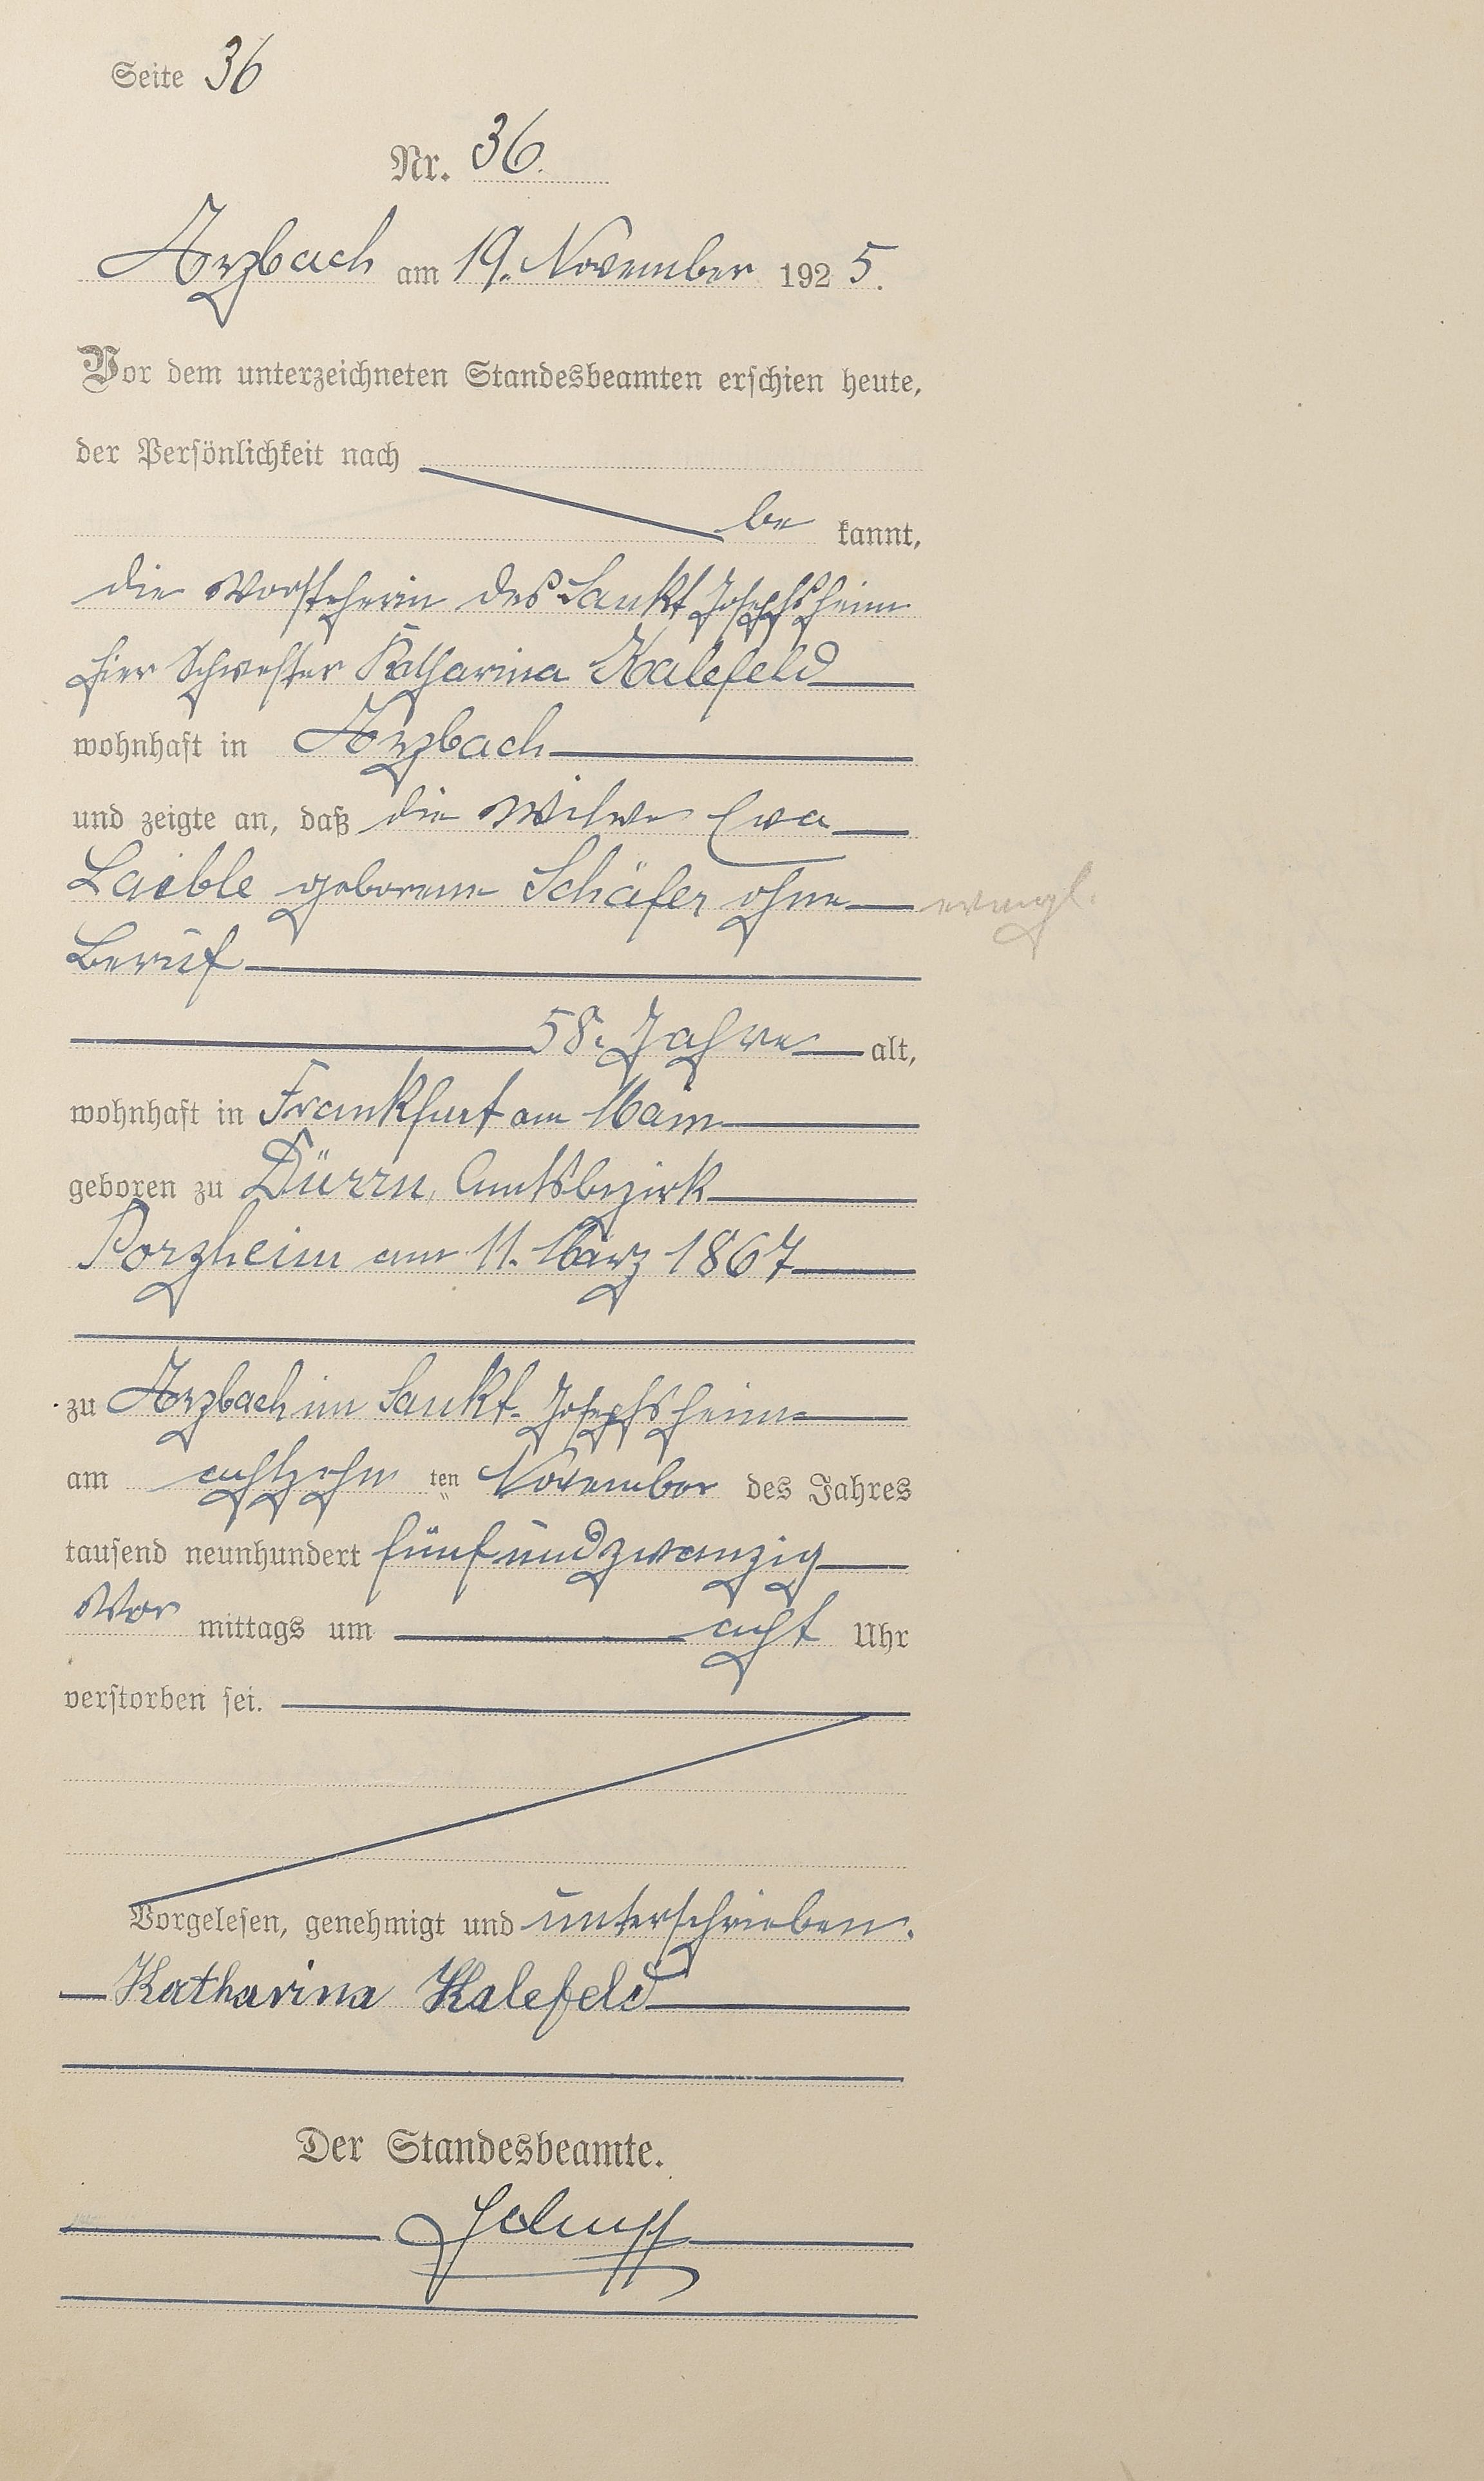 Seite 36
Nr. 36.
Arzbach am 19. November 1925.
Vor dem unterzeichneten Standesbeamten erschien heute,
der Persönlichkeit nach
be kannt,
die Vorsteherin des Sankt Josephsheim
hier Schwester Katharina Kalefeld
wohnhaft in Arzbach
und zeigte an, daß die Witwe Eva
Laible geborene Schäfer ohne evangl.
Beruf
58. Jahre alt,
wohnhaft in Frankfurt am Main
geboren zu Dürrn, Amtsbezirk
Porzheim am 11. März 1867
zu Arzbach im Sankt-Josephsheim
am achtzehn ten November des Jahres
tausend neunhundert fünfundzwanzig
Vor mittags um acht Uhr
verstorben sei.
Vorgelesen, genehmigt und unterschrieben.
Katharina Kalefeld
Der Standesbeamte.